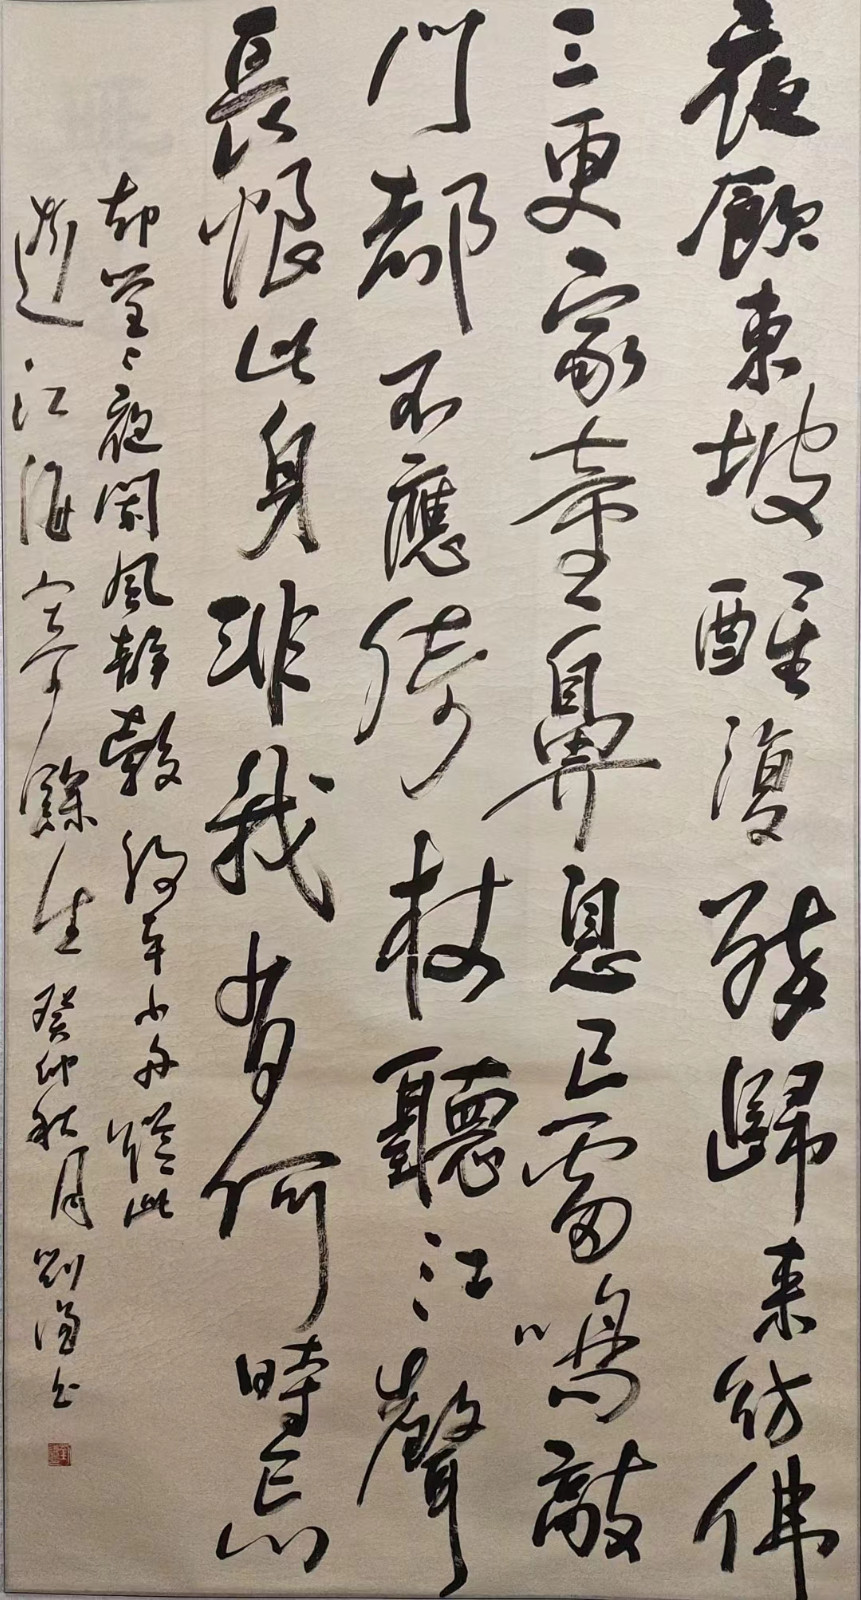 夜飲東坡醒復醉歸來彷佛
三更家童鼻息已雷鳴敲
門都不應倚杖聽江聲
長恨此身非我有何時忘
却營〻夜闌風静縠紋平小舟從此
逝江海寄餘生癸卯秋月劉书